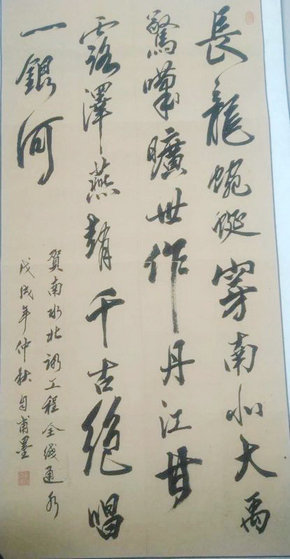 長龍蜿蜒穿南北大禹
驚嘆曠世作丹江甘
露澤燕趙千古絕唱
一銀河
賀南水北調工程全綫通水
戊戌年仲秋自甫墨